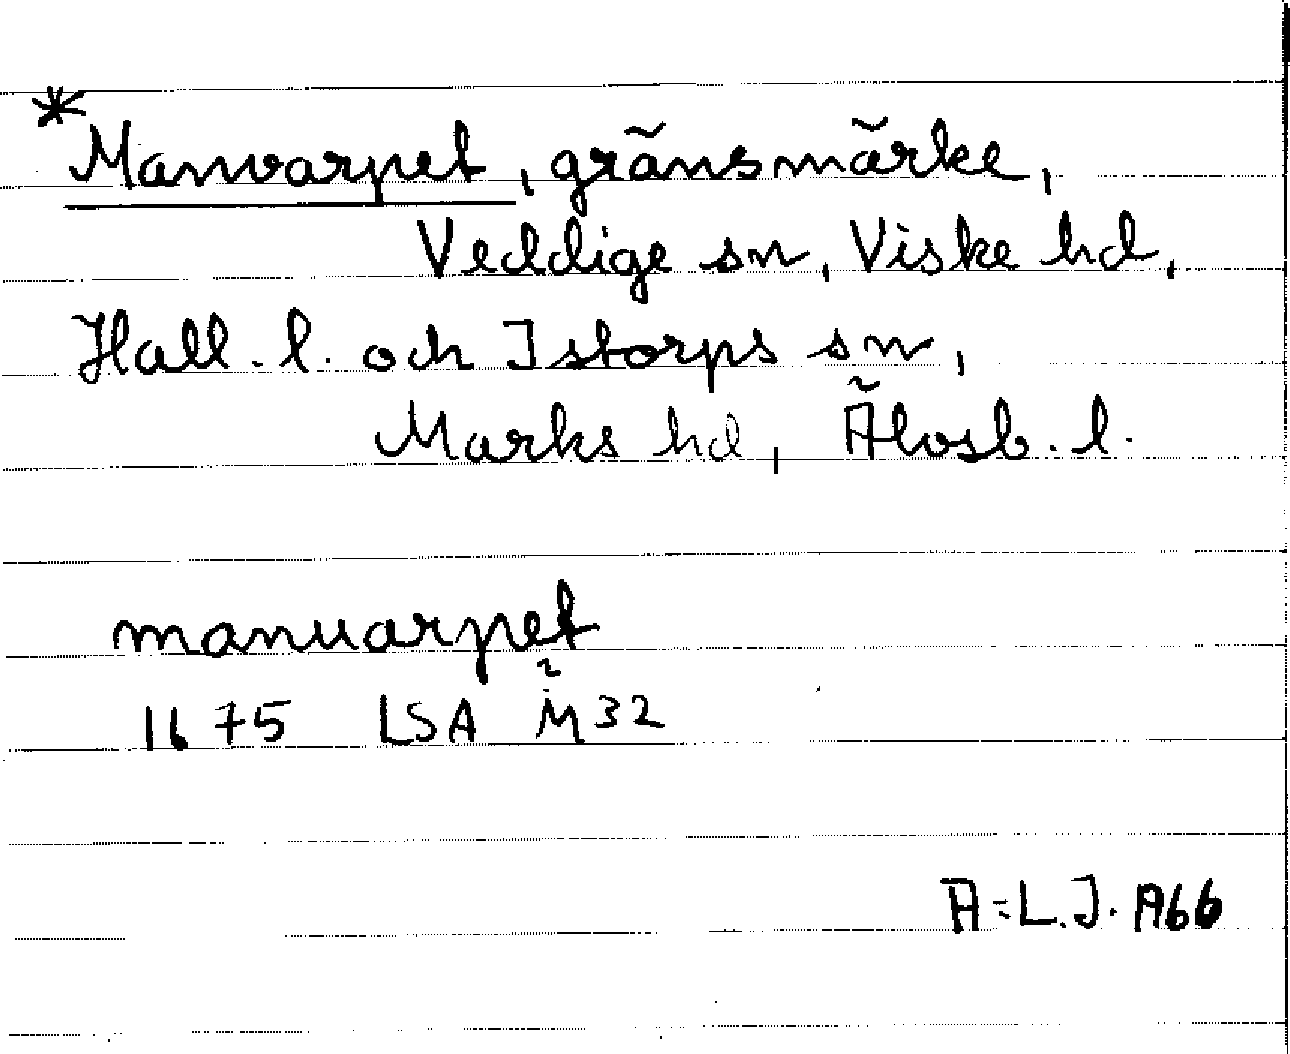 *Manvarpet, gränsmärke,
Veddige sn, Viske hd,
Hall. l. och Istorps sn,
Marks hd, Älvsb. l.
manuarpet
1675 LSA M̃32
A=L.J. A66